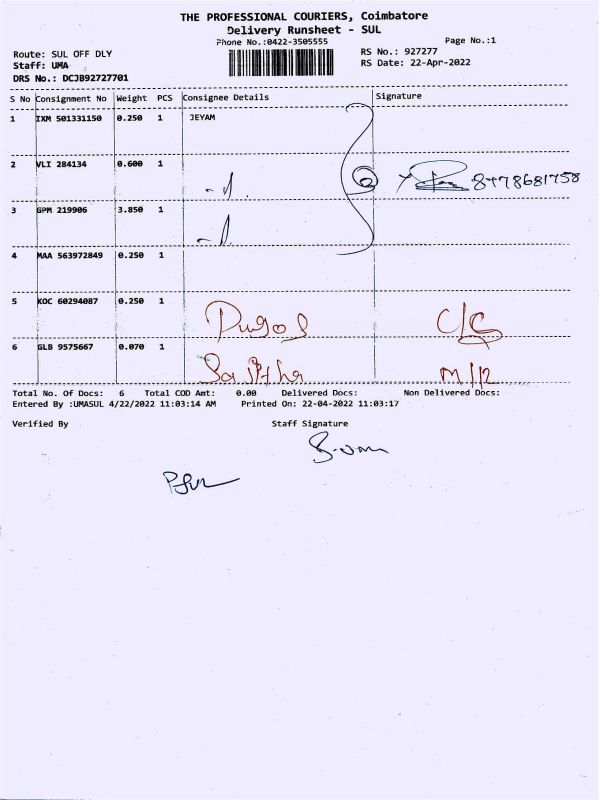 THE PROFESSIONAL COURIERS, Coimbatore
Delivery Runsheet - SUL
Phone No.:0422-3505555
Page No.:1
Route: SUL OFF DLY
RS No.: 927277
Staff: UMA
RS Date: 22-Apr-2022
DRS No.: DCJB92727701
S No Consignment No Weight PCS Consignee Details Signature
1 IXM 501331150 0.250 1 JEYAM
2 VLI 284134 0.600 1
8778681758
3 GPM 219906 3.850 1
4 MAA 563972849 0.250 1
5 KOC 60294087 0.250 1
6 GLB 9575667 0.070 1
Total No. Of Docs: 6 Total COD Amt: 0.00 Delivered Docs: Non Delivered Docs:
Entered By :UMASUL 4/22/2022 11:03:14 AM Printed On: 22-04-2022 11:03:17
Verified By Staff Signature